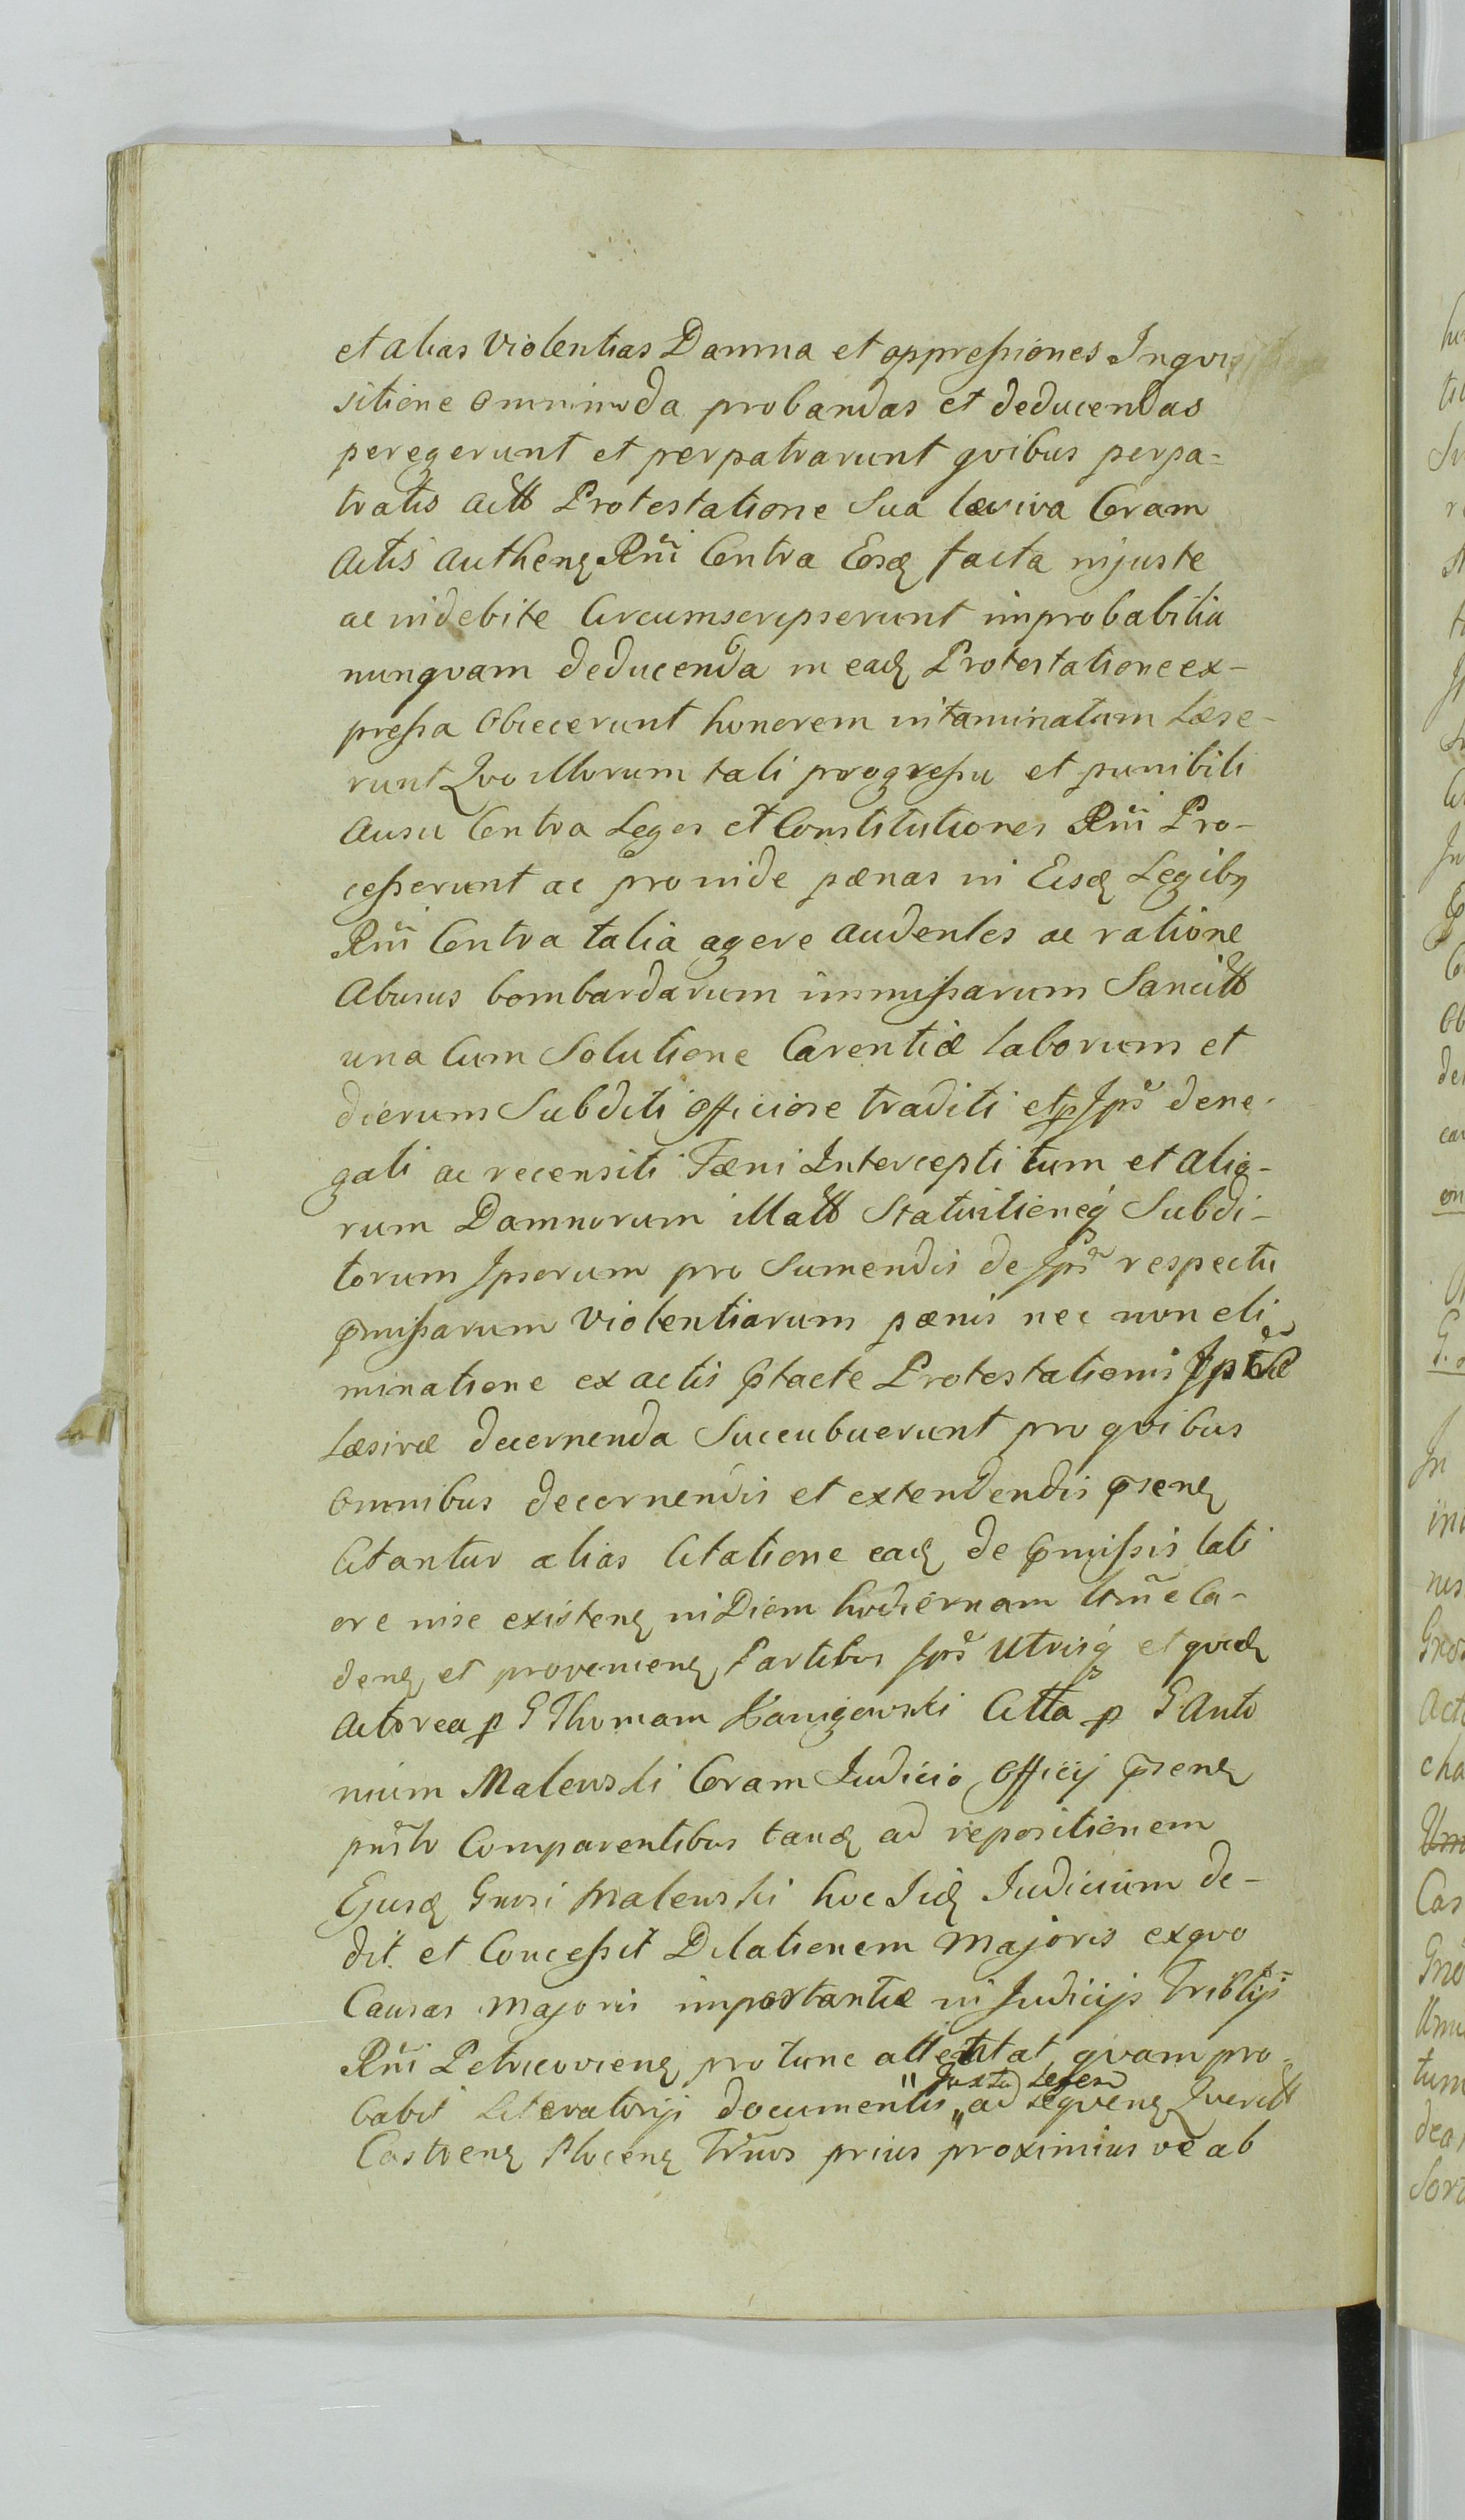 et alias Violentias Damna et oppreſsiones Inqvi
sitione omnimoda probandas et deducendas
peregerunt et perpatrarunt qvibus perpa=
tratis Protestatione Sua læsiva Coram
Actis Authenꝫ Rñi Contra Eosꝫ facta injuste
ac indebite Circumscripserunt improbabilia
nunqvam deducenda in eadꝫ Protestatione ex-
preſsa Obiecerunt honorem intaminatum Læse-
runt Qvo illorum tali progreſsu et punibili
Ausu Contra Leges et Constitutiones Rñi Pro-
ceſserunt ac proinde pænas in Eisdꝫ Legibꝫ
Rñi Contra talia agere audentes ac ratione
Abusus bombardarum immiſsarum Sancitt
una Cum Solutione Carentiæ laborum et
dierum Subditi officiose traditi et p Ips̃ dene-
gati ac recensiti Fæni Intercepti tum et alio-
rum Damnorum illatt Statuitioneq́ Subdi-
torum Ipsorum pro Sumendis de Ips̃ respectu
p̃miſsarum Violentiarum pænis nec non eli
minatione ex actis p̃tacte Protestationis
Læsivæ decernenda Succubuerunt pro qvibus
Omnibus decernendis et extendendis p̃senꝫ
Citantur alias Citatione eadꝫ de p̃miſsis lati
ore inse existenꝫ in Diem hodiernam tim̃e Ca-
denꝫ et provenienꝫ Partibus Ips̃ Utrisq́ et qvidꝫ
Actorea p G Thomam Kanigowski Citta p G Anto
nium Malewski Coram Judicio Officij p̃senꝫ
pñstr Comparentibus tandꝫ ad repositionem
Ejusdꝫ Gnosi Malewski hoc Judicium de-
dit et Conceſsit Dilationem Majoris exqvo
Causas Majoris importantiæ in Judicijs Tribtijs
Rñi Petricovienꝫ pro tunc attentat qvam pro-
Juxta Legem
babit Literatorijs documentis „ ad seqvenꝫ Qverett
Castrenꝫ Plocenꝫ Trm̃os prius proximius ve ab